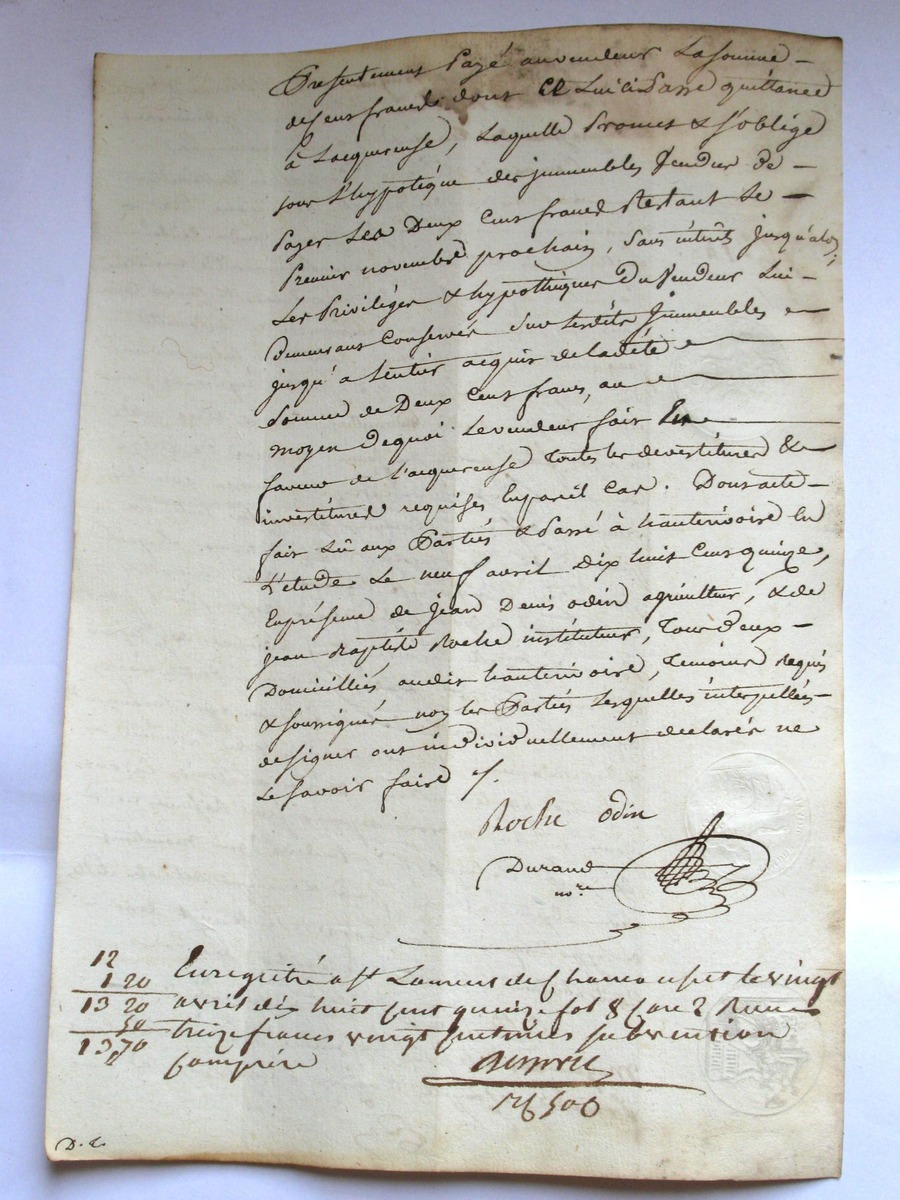 Presentement Payé au vendeur La somme -
de Cent francs dont il Lui a Passé quittance
à L'acquereuse, Laquelle Promet & s'oblige
sous L'hypotéque des immeubles Vendus de -
Payer Les Deux Cens francs Restant Le -
Premier novembre prochain, Sans intérêts jusqu'alors;
Les Priviléges & hypothèques Du Vendeur Lui -
Demeurans Conservés Sur Lesdits Immeubles
jusqu'a L'entier acquis de ladite
Somme de Deux Cens francs, au
moyen de quoi Le vendeur fait En
faveur de L'acquereuse Toutes les devestitures &
investitures requises En pareil Cas. Dont acte -
fait Lû aux Parties & Passé à hauterivoire En
L'étude Le neuf avril Dix huit Cens quinze,
En présence de Jean Denis Odin agriculteur, & de
jean Baptiste Roche instituteur, Tous Deux -
Domiciliés audit hauterivoire, Temoins Requis
& soussignés non les Parties Lesquelles interpellées -
de signer ont individuellement declarés ne
Le savoir faire ./.
Roche Odin
Durand
no.re
12
1 20
13 20
50
13,70
Enregistré a St Laurent de Chamousset le vingt
avril dix huit cent quinze fol 8 Case 2 Reçu
treize francs vingt centimes subvention
comprise
D. C.